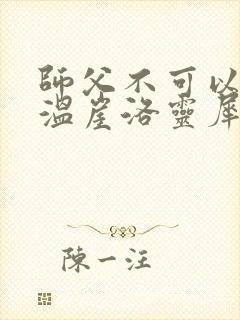 師父不可以
溫崖洛靈犀
陳一汪